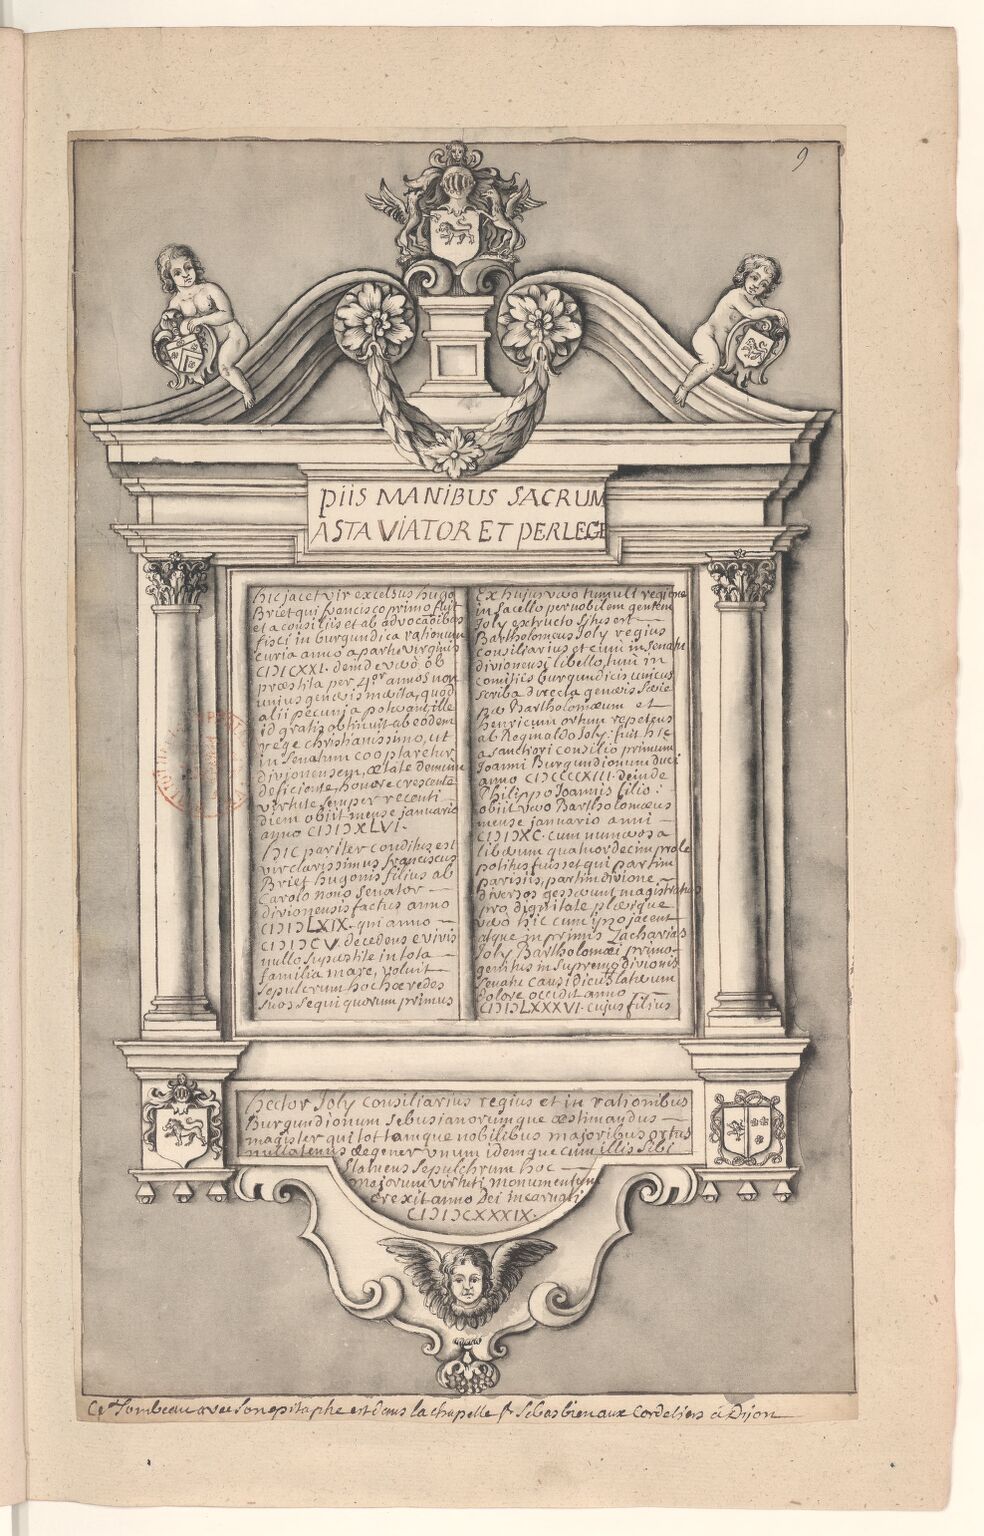 9
PIIS MANIBUS SACRUM
ASTA VIATOR ET PERLEGE
hic jacet vir excelsus hugo
Briet qui francisco primo fuit
et a consiliis et ab advocationibus
fisci in burgundica rationum
curia anno a partu virginis
CIƆIƆXXI. deinde vero ob
præstita per 4or annos non
unius generis merita, quod
alii pecunia poterant, ille
id gratis obtinuit ab eodem
rege christianissimo, ut
in Senatum cooptaretur
divionensem, ætate demum
deficiente, honore crescente
virtute semper recenti
diem obiit mense januario
anno CIƆIƆXLVI.
hic pariter conditus est
vir clarissimus franciscus
Briet hugonis filius ab
Carolo nono Senator
divionensis factus anno
CIƆIƆLXIX. qui anno
CIƆIƆCV. decedens e vivis
nullo superstite in tota
familia mare, voluit
sepulcrum hoc hæredes
suos sequi quorum primus
Ex hujus vero tumuli regione
in sacello per nobilem gentem
Joly extructo situs est
Bartholomeus Joly regius
consiliarius et cum in senatu
divionensi libello, tum in
comitiis burgundicis unicus
scriba directa generis serie
per Bartholomæum et
henricum ortum repetens
ab Reginaldo Joly: fuit hic
a sanctiori consilio primum
Joanni Burgundionum duci
anno CIƆCCCCXIII. deinde
Philippo Joannis filio:
obiit vero Bartholomæus
mense januario anni
CIƆIƆXC. cum numerosa
liberum quatuordecim prole
potitus fuisset qui partim
parisiis, partim divione
diversos gesserunt magistratus
pro dignitate plerique
vero hic cum ipso jacent
atque in primis Zacharias
Joly Bartholomæi primo-
genitus in supremo divionis
Senatu causidicus laterum
dolore occidit anno
CIƆIƆLXXXVI. cujus filius
hector Joly consiliarius regius et in rationibus
Burgundionum sebusianorumque æstimandus
magister qui tot tamque nobilibus majoribus ortus
nullatenus degener unum idemque cum illis sibi
statuens sepulchrum hoc
majorum virtuti monumentum
erexit anno Dei incarnati
CIƆIƆCXXXIX.
Ce Tombeau avec son epitaphe est dans la chapelle St Sebastien aux Cordeliers à Dijon